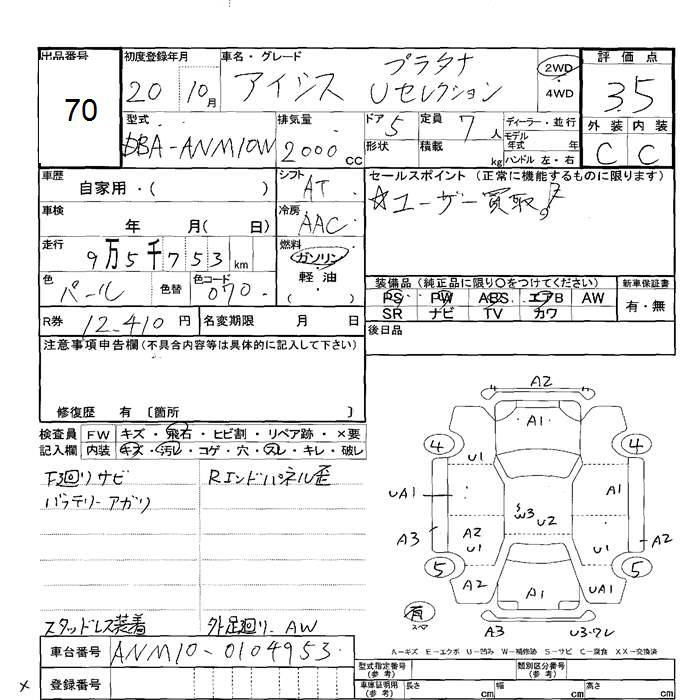 出品番号 初度登録年月 車名・グレード 評価点
70 20 10月 アイシス プラタナ Uセレクション 2WD 4WD 3.5
型式 排気量 ドア 5 定員 7人 ディーラー・並行 外装 内装
DBA-ANM10W 2000cc 形状 積載 kg モデル年式 年 ハンドル 左・右 C C
車歴 シフト セールスポイント(正常に機能するものに限ります)
自家用・( ) AT ☆ユーザー買取。
車検 年 月(日) 冷房 AAC
走行 9万5千753km 燃料 ガソリン 軽油 ( ・ )
色 パール 色替 色コード 070 装備品(純正品に限り〇をつけてください) 新車保証書
PS PW ABS エアB AW 有・無
SR ナビ TV カワ
R券 12,410円 名変期限 月 日 後日品
注意事項申告欄(不具合内容等は具体的に記入して下さい)
修復歴 有〔箇所 〕
検査員 FW キズ・飛石・ヒビ割・リペア跡・×要
記入欄 内装 キズ・汚レ・コゲ・穴・スレ・キレ・破レ
F廻りサビ Rエンドパネル歪
バッテリーアガリ
スタッドレス装着 外足廻り、AW
A2
A1
4 4
U1 A1
UA1
W3 U2
A3 A2 U1 U1 A2
5 5
A2 A1 UA1
有 スペア
A3 U3・ワレ
A-キズ E-エクボ U-凹み W-補修跡 S-サビ C-腐食 XX-交換済
車台番号 ANM10-0104953 型式指定番号(参考) 類別区分番号(参考)
× 登録番号 車庫証明用(参考) 長さ cm 幅 cm 高さ cm